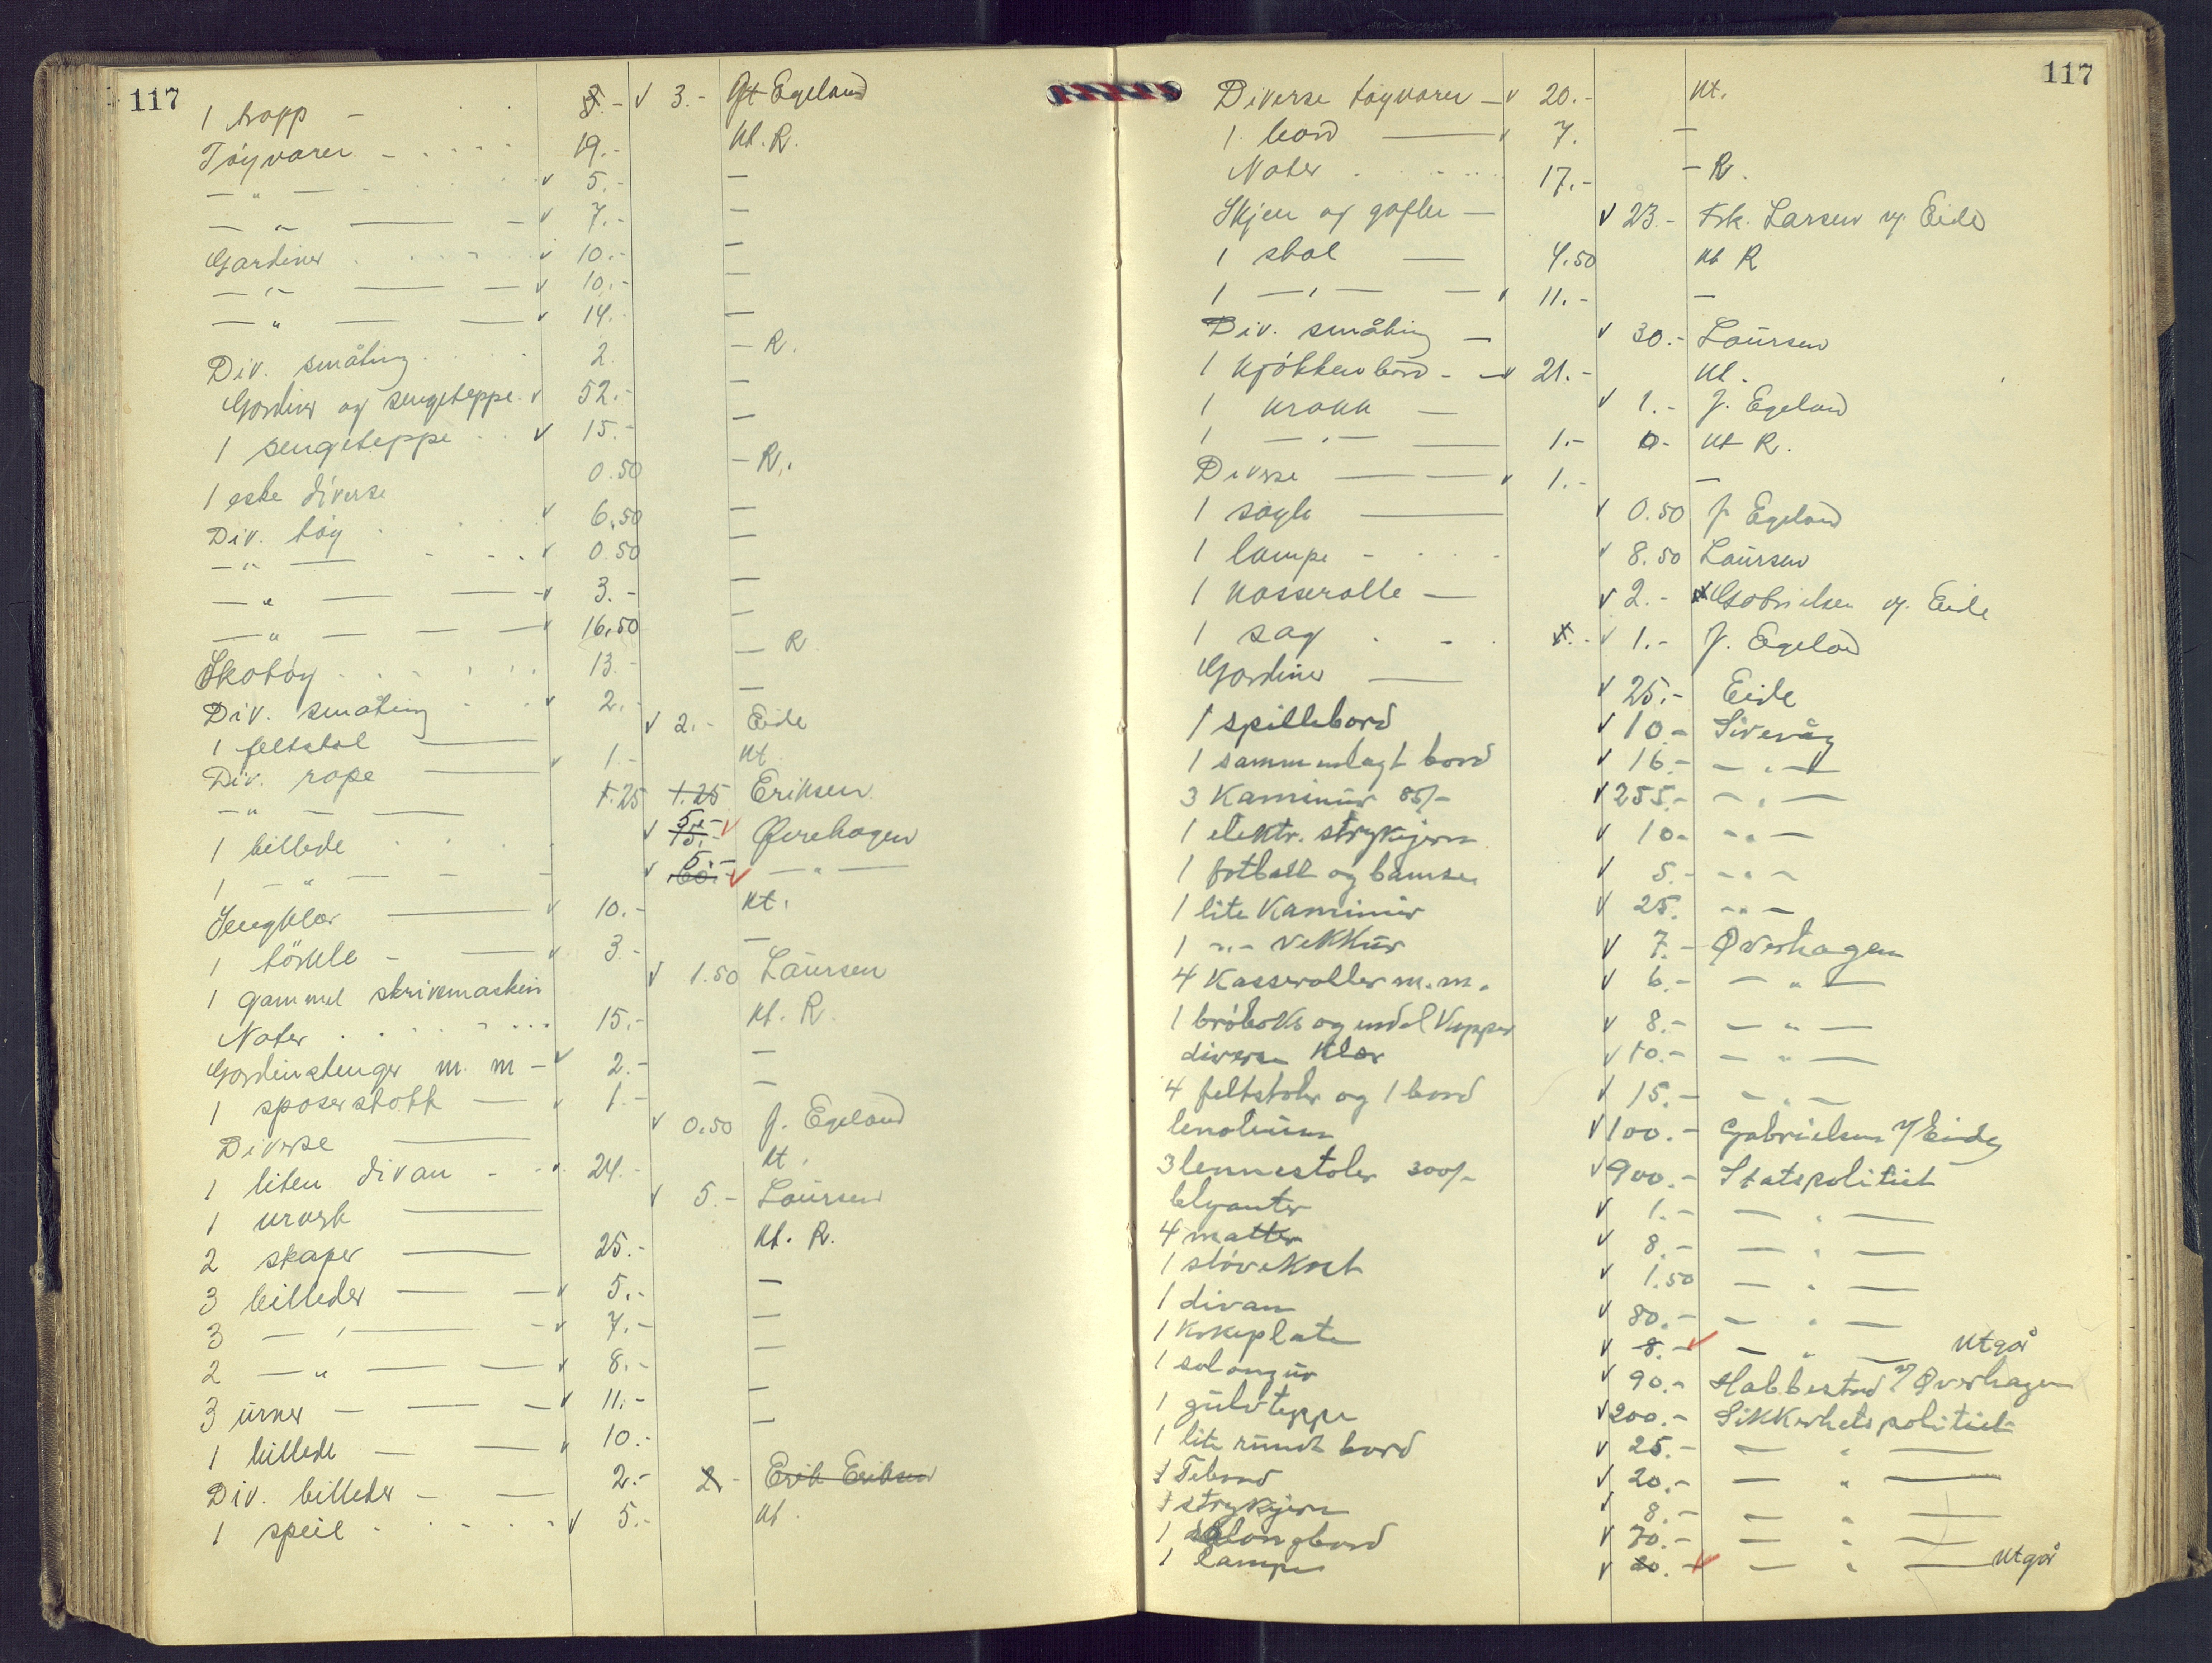 117
1 trapp - 3.- v 3.- Egeland
Tøyvarer - 19.- Kt. R.
- " - v 5.- -
- " - v 7.- -
Gardiner v 10.- -
- " - v 10.- -
- " - v 14. -
Div. småting 2. - R.
Gardiner og sengeteppe v 52.- -
1 sengeteppe v 15.- -
1 eske diverse 0.50 - R.
Div. tøy v 6.50 -
- " - v 0.50 -
- " - v 3.- -
- " - v 16.50 -
Skotøy 13.- - R
Div. småting v 2.- -
1 feltstol v 2.- Eide
Div. rape v 1.- Kt
- " - 1.25 1.25 Eriksen
1 billede v 15.- 5.- v Øverhagen
1 - " - v 5.- v - " -
Sengklær v 10.- Kt.
1 törkle - v 3.- -
1 gammel skrivemaskin v 1.50 Laursen
Noter 15.- Kt. R.
Gardinstenger m. m - v 2.- -
1 spaserstokk v 1.- -
Diverse v 0.50 J. Egeland
1 liten divan v 24.- Kt.
1 urverk v 5.- Laursen
2 skaper 25.- Kt. R.
3 billeder v 5.- -
3 - " - v 7.- -
2 - " - v 8.- -
3 urner v 11.- -
1 billede v 10.- -
Div. billeder - 2.- 2.- Erik Eriksen
1 speil v 5.- Kt.
117
Diverse tøyvarer - v 20.- Kt.
1 bord v 7. -
Noter 17.- - R.
Skjeer og gafler - v 23.- Frk. Larsen v/ Eide
1 stol 4.50 Kt R
1 - " - v 11.- -
Div. småting v 30.- Laursen
1 kjøkkenbord - v 21.- Kt.
1 krakk v 1.- J. Egeland
1 - " - 1.- 0- Kt R.
Diverse v 1.- -
1 sagle v 0.50 J Egeland
1 lampe v 8.50 Laursen
1 kasserolle v 2.- Gabrielsen v/ Eide
1 sag 1.- v 1.- J. Egeland
Gardiner v 25.- Eide
1 spillebord v 10.- Sivevåg
1 sammenlagt bord v 16.- - " -
3 Kaminur 85/- v 255.- - " -
1 elektr. strykejern v 10- - " -
1 fotball og bamse v 5.- - " -
1 lite Kaminur v 25. - " -
1 - " - vekkur v 7.- Øverhagen
4 Kasseroller m. m. v 6.- - " -
1 brøboks og endel Kopper v 8.- - " -
diverse Klær v 10.- - " -
4 feltstoler og 1 bord v 15.- - " -
lenoleum v 100.- Gabrielsen v/ Eide
3 lennestoler 300/- v 900.- Statspolitiet
blyanter v 1.- - " -
4 matter v 8.- - " -
1 støvekost v 1.50 - " -
1 divan v 80.- - " -
1 kokeplate v 8.- v - " - utgår
1 salongur v 90.- Habbestad v/ Øverhagen
1 gulvteppe v 200.- Sikkerhetspolitiet
1 lite rundt bord v 25.- - " -
1 Tebord v 20.- - " -
1 strykejern v 8.- - " -
1 salongbord v 70.- - " -
1 lampe v 20.- v - " - utgår